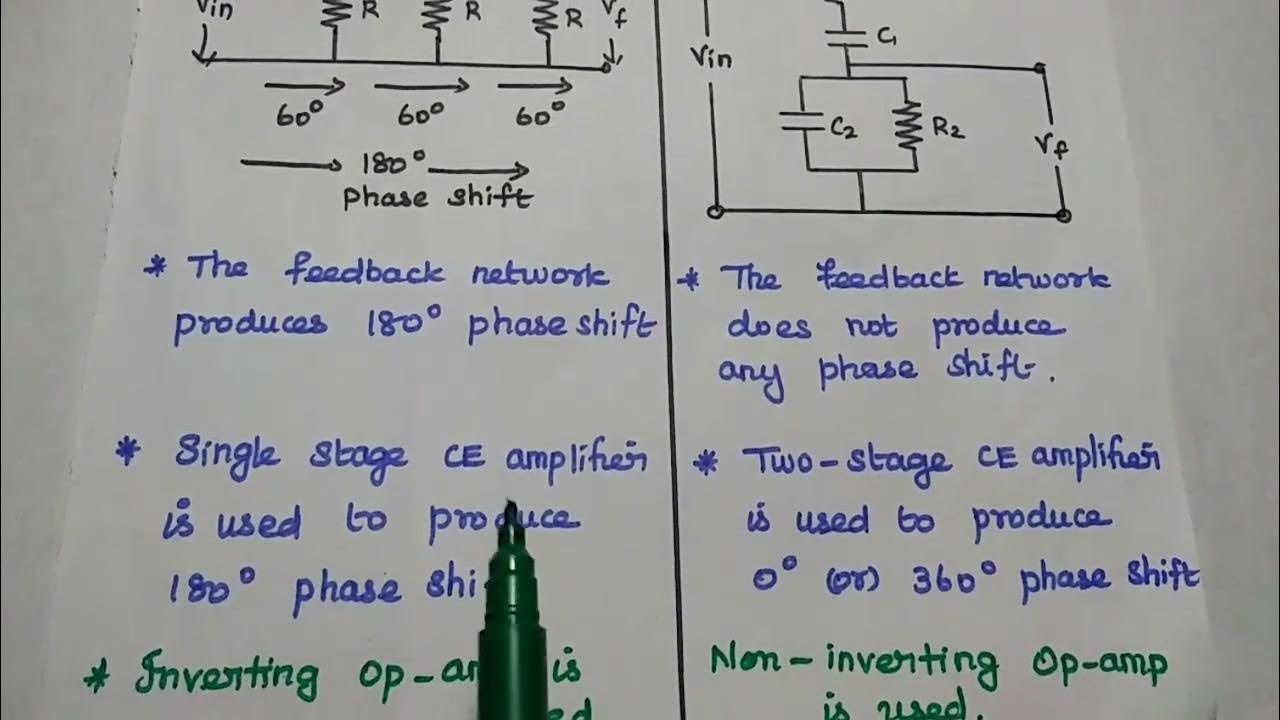 Vin
R
R
R
Vf
60°
60°
60°
180°
phase shift
* The feedback network
produces 180° phase shift
* Single stage CE amplifier
is used to produce
180° phase
* Inverting Op-
is
C1
Vin
C2
R2
Vf
* The feedback network
does not produce
any phase shift.
* Two-stage CE amplifier
is used to produce
0° (or) 360° phase shift
Non-inverting Op-amp
is used.